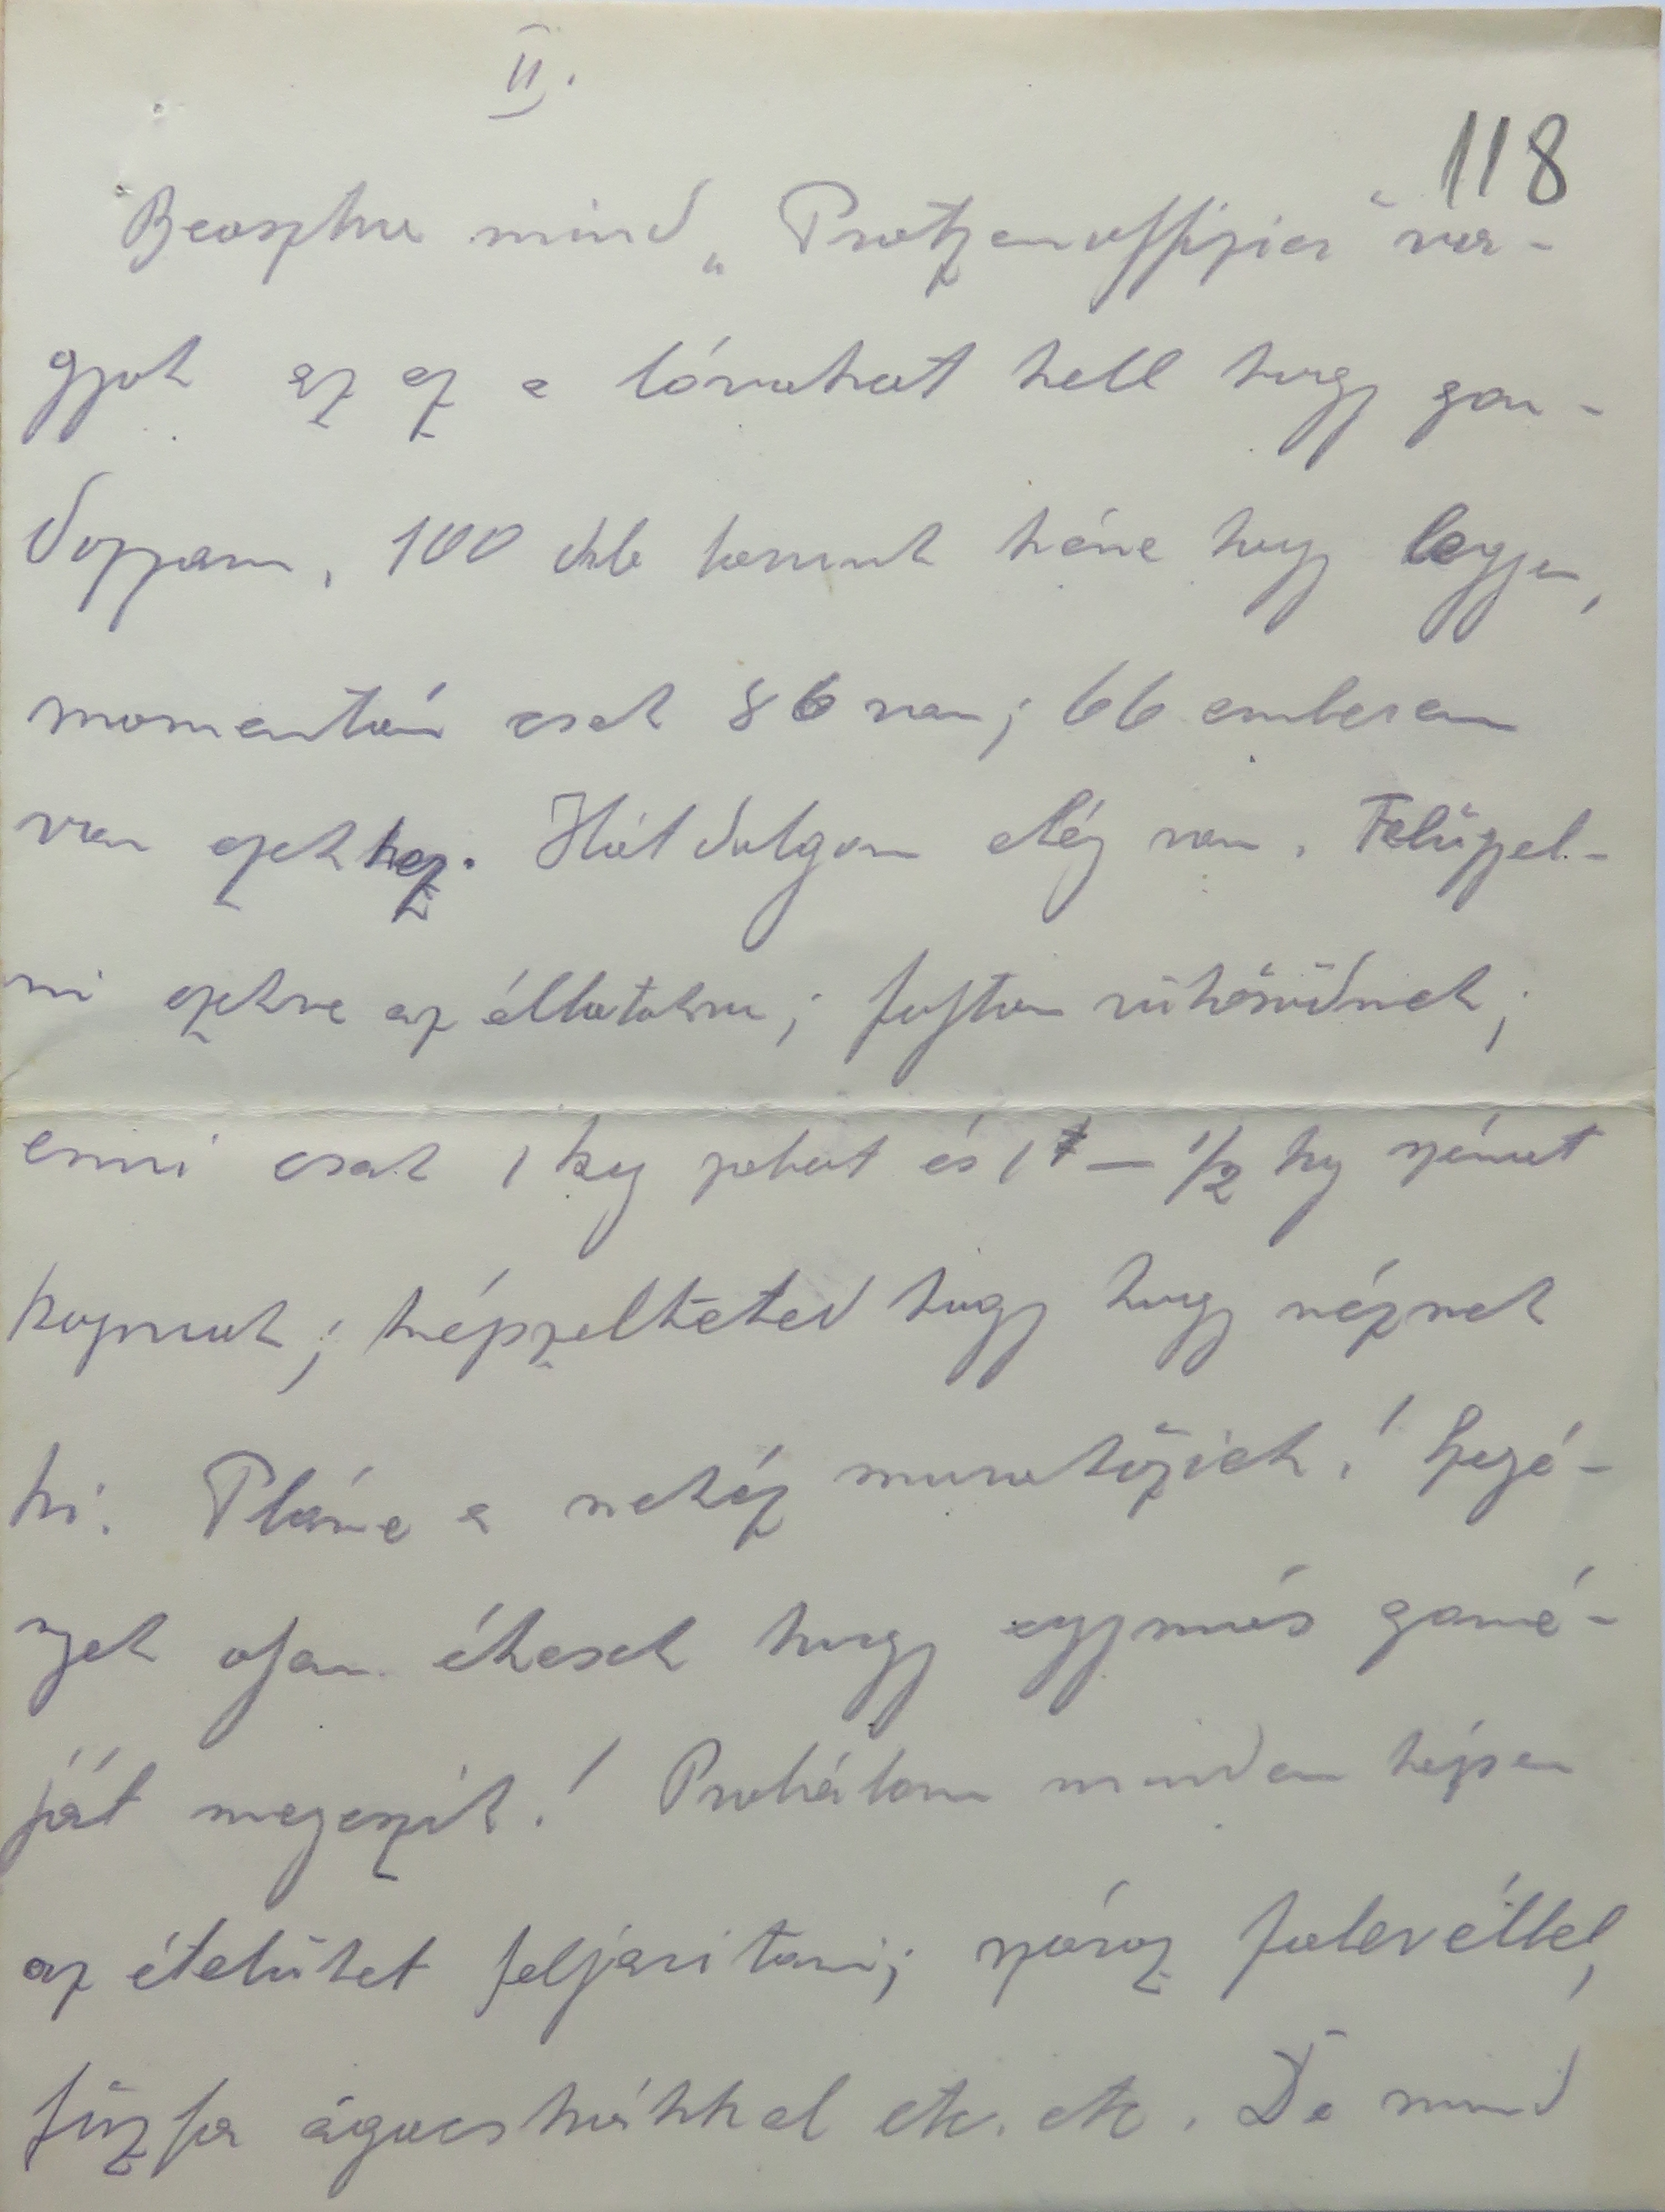 II.
118
Beosztva mind „Protzenoffizier" va-
gyok az az a lóvakat kell hogy gon-
dozzam, 100 drb lovunk kéne hogy legyen,
momentán csak 86 van; 66 emberem
van ezekhez. Hát dolgom elég van. Felügyel-
ni ezekre az állatokra; folyton rühösödnek;
enni csak 1 kg zabot és 1 – 1/2 kg szénát
kapnak; képzelheted hogy hogy néznek
ki. Pláne a nehéz munkához! Szegé-
nyek olyan éhesek hogy egymás ganéj-
ját megeszik! Probálom minden képen
az ételüket feljavítani; száraz falevéllel,
fűzfa ágacskákkal etc. etc. De mind